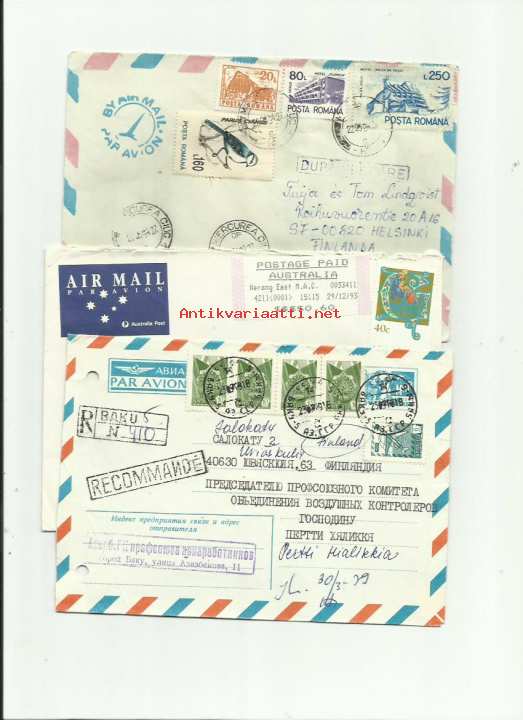 BY AIR MAIL
PAR AVION
20L
POSTA ROMANA
80L
POSTA ROMANA
L.250
POSTA ROMANA
POSTA ROMANA
L160
MIERCUREA CIUC
MIERCUREA CIUC
Tuija es Tom Lindqvist
20 A 16
SF-00820 HELSINKI
FINLANDA
AIR MAIL
PAR AVION
Australia Post
POSTAGE PAID
AUSTRALIA
Nerang East M.A.C. 0033411
4211(0001) 15:15 29/12/93
40c
Antikvariaatti.net
АВИА
PAR AVION
R BAKU 5
N 410
RECOMMANDE
Jalokatu Finland
САЛОКАТУ 2
40630 ЮВЯСКЮЛЯ,63. ФИНЛЯНДИЯ
ПРЕДСЕДАТЕЛЮ ПРОФСОЮЗНОГО КОМИТЕТА
ОБЪЕДИНЕНИЯ ВОЗДУШНЫХ КОНТРОЛЕРОВ
ГОСПОДИНУ
ПЕРТТИ ХЯЛИККЯ
Pertti Hialikkia
30/3-89
Индекс предприятия связи и адрес
отправителя
профсоюза авиаработников
город Баку, улица Азизбекова, 11